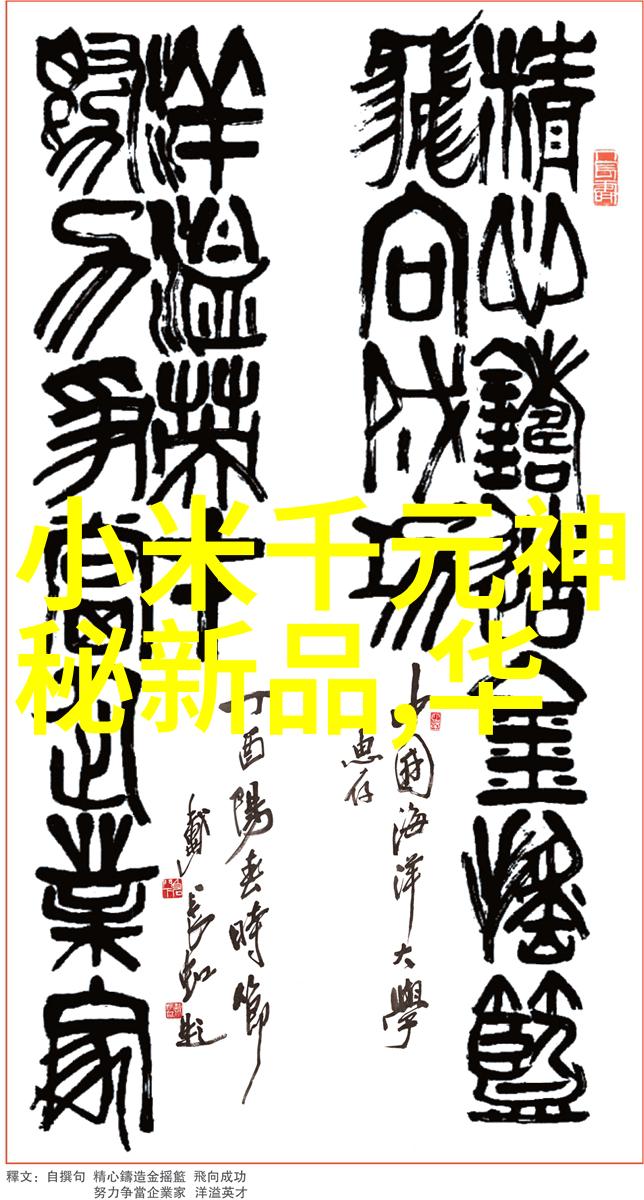 精心鑄造金摇籃
飛向成功
洋溢英才
努力争當企業家
中國海洋大學
惠存
丁酉陽春時節
戴長虹題
小米千元神
秘新品,华
釋文：自撰句 精心鑄造金摇籃 飛向成功
努力争當企業家 洋溢英才